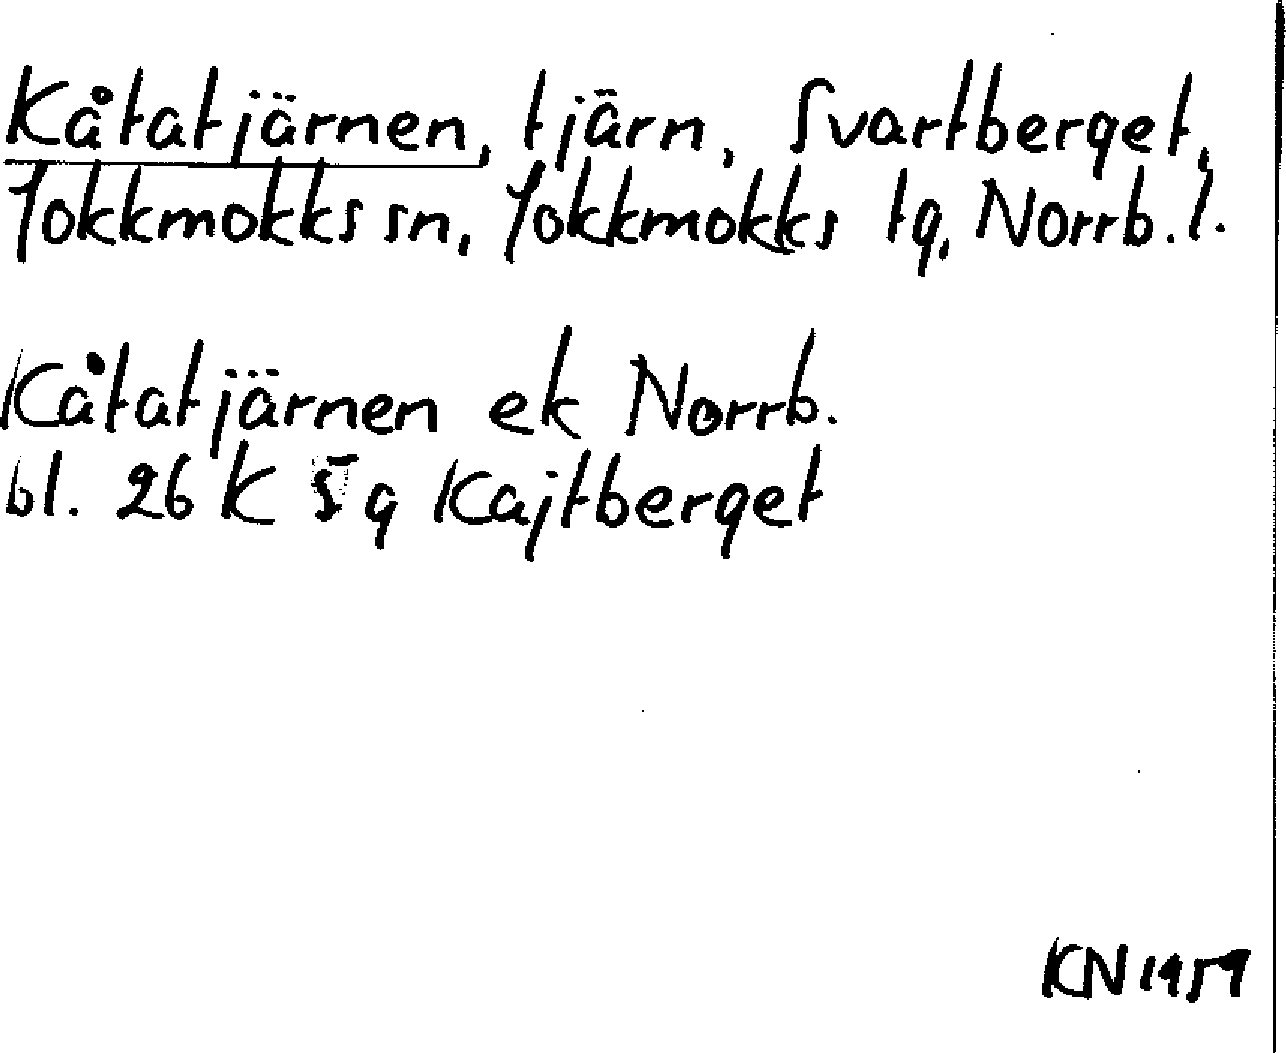 Kåtatjärnen, tjärn, Svartberget,
Jokkmokks sn, Jokkmokks tg, Norrb. l.
Kåtatjärnen ek Norrb.
bl. 26 K 5 g Kajtberget
KN 1959